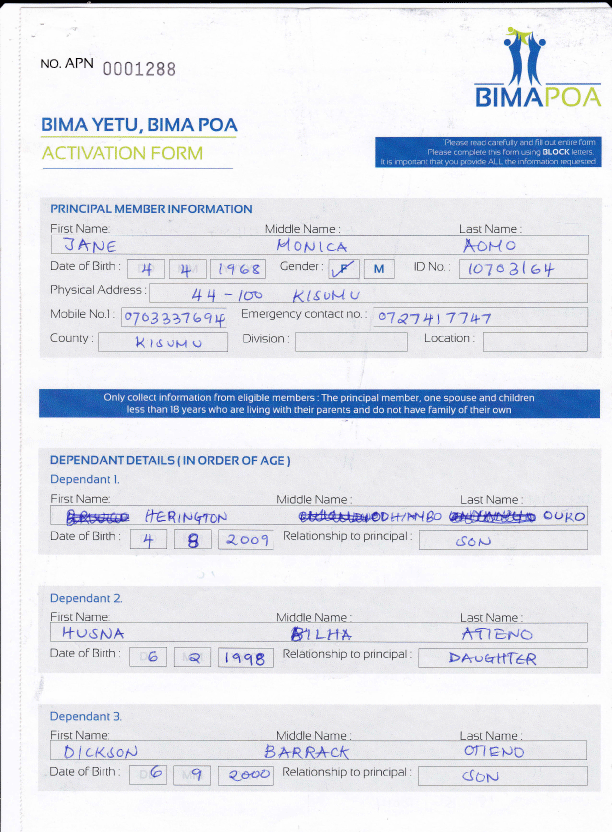 NO. APN 0001288
BIMAPOA
BIMA YETU, BIMA POA
ACTIVATION FORM
Please read carefully and fill out entire form
Please complete this form using BLOCK letters.
It is important that you provide ALL the information requested
PRINCIPAL MEMBER INFORMATION
First Name: Middle Name : Last Name :
JANE MONICA AOMO
Date of Birth : 4 4 1968 Gender : F M ID No. : 10703164
Physical Address : 44 - 100 KISUMU
Mobile No.1 : 0703337694 Emergency contact no. : 0727417747
County : KISUMU Division : Location :
Only collect information from eligible members : The principal member, one spouse and children
less than 18 years who are living with their parents and do not have family of their own
DEPENDANT DETAILS ( IN ORDER OF AGE )
Dependant 1.
First Name: Middle Name : Last Name :
HERINGTON ODHIAMBO OUKO
Date of Birth : 4 8 2009 Relationship to principal : SON
Dependant 2.
First Name: Middle Name : Last Name :
HUSNA BILHA ATIENO
Date of Birth : 6 2 1998 Relationship to principal : DAUGHTER
Dependant 3.
First Name: Middle Name : Last Name :
DICKSON BARRACK OTIENO
Date of Birth : 6 9 2000 Relationship to principal : SON